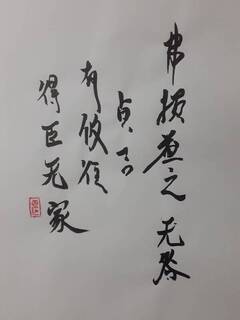 弗損益之 无咎
貞吉
有攸往
得臣无家